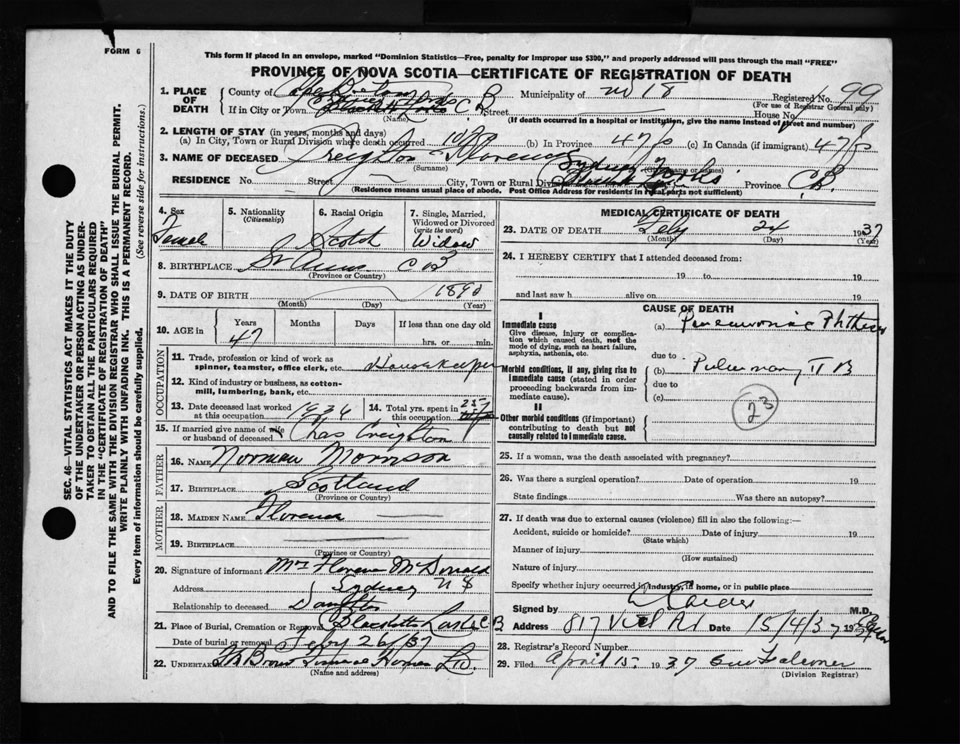 FORM 6
This form if placed in an envelope, marked "Dominion Statistics—Free, penalty for improper use $300," and properly addressed will pass through the mail "FREE"
PROVINCE OF NOVA SCOTIA—CERTIFICATE OF REGISTRATION OF DEATH
1. PLACE OF DEATH
County of Cape Breton Municipality of No 18 Registered No. 99
(For use of Registrar General only)
If in City or Town C B Street House No.
(Name) (If death occurred in a hospital or institution, give the name instead of street and number)
2. LENGTH OF STAY (in years, months and days)
(a) In City, Town or Rural Division where death occurred 10 (b) In Province 47 (c) In Canada (if immigrant) 47
3. NAME OF DECEASED Creighton Florence
(Surname) (Given name or names)
RESIDENCE No. Street City, Town or Rural Division Sydney Forks Province C B.
(Residence means usual place of abode. Post Office Address for residents in rural parts not sufficient)
4. Sex Female
5. Nationality (Citizenship)
6. Racial Origin Scotch
7. Single, Married, Widowed or Divorced (write the word) Widow
8. BIRTHPLACE St Anns C B
(Province or Country)
9. DATE OF BIRTH 1890
(Month) (Day) (Year)
10. AGE in Years Months Days If less than one day
47 hrs. or min.
OCCUPATION
11. Trade, profession or kind of work as spinner, teamster, office clerk, etc. Housekeeper
12. Kind of industry or business, as cotton-mill, lumbering, bank, etc.
13. Date deceased last worked at this occupation 1936
14. Total yrs. spent in this occupation 25
15. If married give name of wife or husband of deceased Chas Creighton
FATHER
16. NAME Norman Morrison
17. BIRTHPLACE Scotland
(Province or Country)
MOTHER
18. MAIDEN NAME Florence
19. BIRTHPLACE
(Province or Country)
20. Signature of informant Mrs Florence McDonald
Address Sydney N S
Relationship to deceased Daughter
21. Place of Burial, Cremation or Removal C B
Date of burial or removal Feby 26/37
22. UNDERTAKER Funeral Home
(Name and address)
MEDICAL CERTIFICATE OF DEATH
23. DATE OF DEATH Feby 24 1937
(Month) (Day) (Year)
24. I HEREBY CERTIFY that I attended deceased from:
19 to 19
and last saw h alive on 19
CAUSE OF DEATH
I
Immediate cause
Give disease, injury or complication which caused death, not the mode of dying, such as heart failure, asphyxia, asthenia, etc.
(a) Pneumonic Phthisis
due to
Morbid conditions, if any, giving rise to immediate cause (stated in order proceeding backwards from immediate cause).
(b) Pulmonary T B
due to
(c)
23
II
Other morbid conditions (if important) contributing to death but not causally related to immediate cause.
25. If a woman, was the death associated with pregnancy?
26. Was there a surgical operation? Date of operation 19
State findings Was there an autopsy?
27. If death was due to external causes (violence) fill in also the following:—
Accident, suicide or homicide? Date of injury 19
(State which)
Manner of injury
(How sustained)
Nature of injury
Specify whether injury occurred in industry, in home, or in public place
Signed by M.D.
Address 817 Vict Rd Date 15/4/37 19
28. Registrar's Record Number
29. Filed April 15 1937 Falconer
(Division Registrar)
SEC. 46—VITAL STATISTICS ACT MAKES IT THE DUTY
OF THE UNDERTAKER OR PERSON ACTING AS UNDER-
TAKER TO OBTAIN ALL THE PARTICULARS REQUIRED
IN THE "CERTIFICATE OF REGISTRATION OF DEATH"
AND TO FILE THE SAME WITH THE DIVISION REGISTRAR WHO SHALL ISSUE THE BURIAL PERMIT.
WRITE PLAINLY WITH UNFADING INK. THIS IS A PERMANENT RECORD.
Every item of information should be carefully supplied. (See reverse side for instructions.)